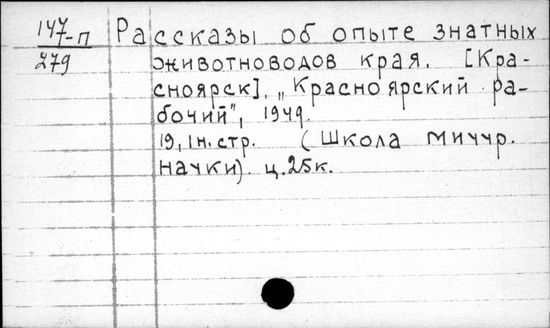 147-п
279
Рассказы об опыте знатных
животноводов края. [Кра-
сноярск], „Красноярский ра-
бочий", 1949.
19, 1 н. стр. (Школа мичур.
науки). ц. 25 к.